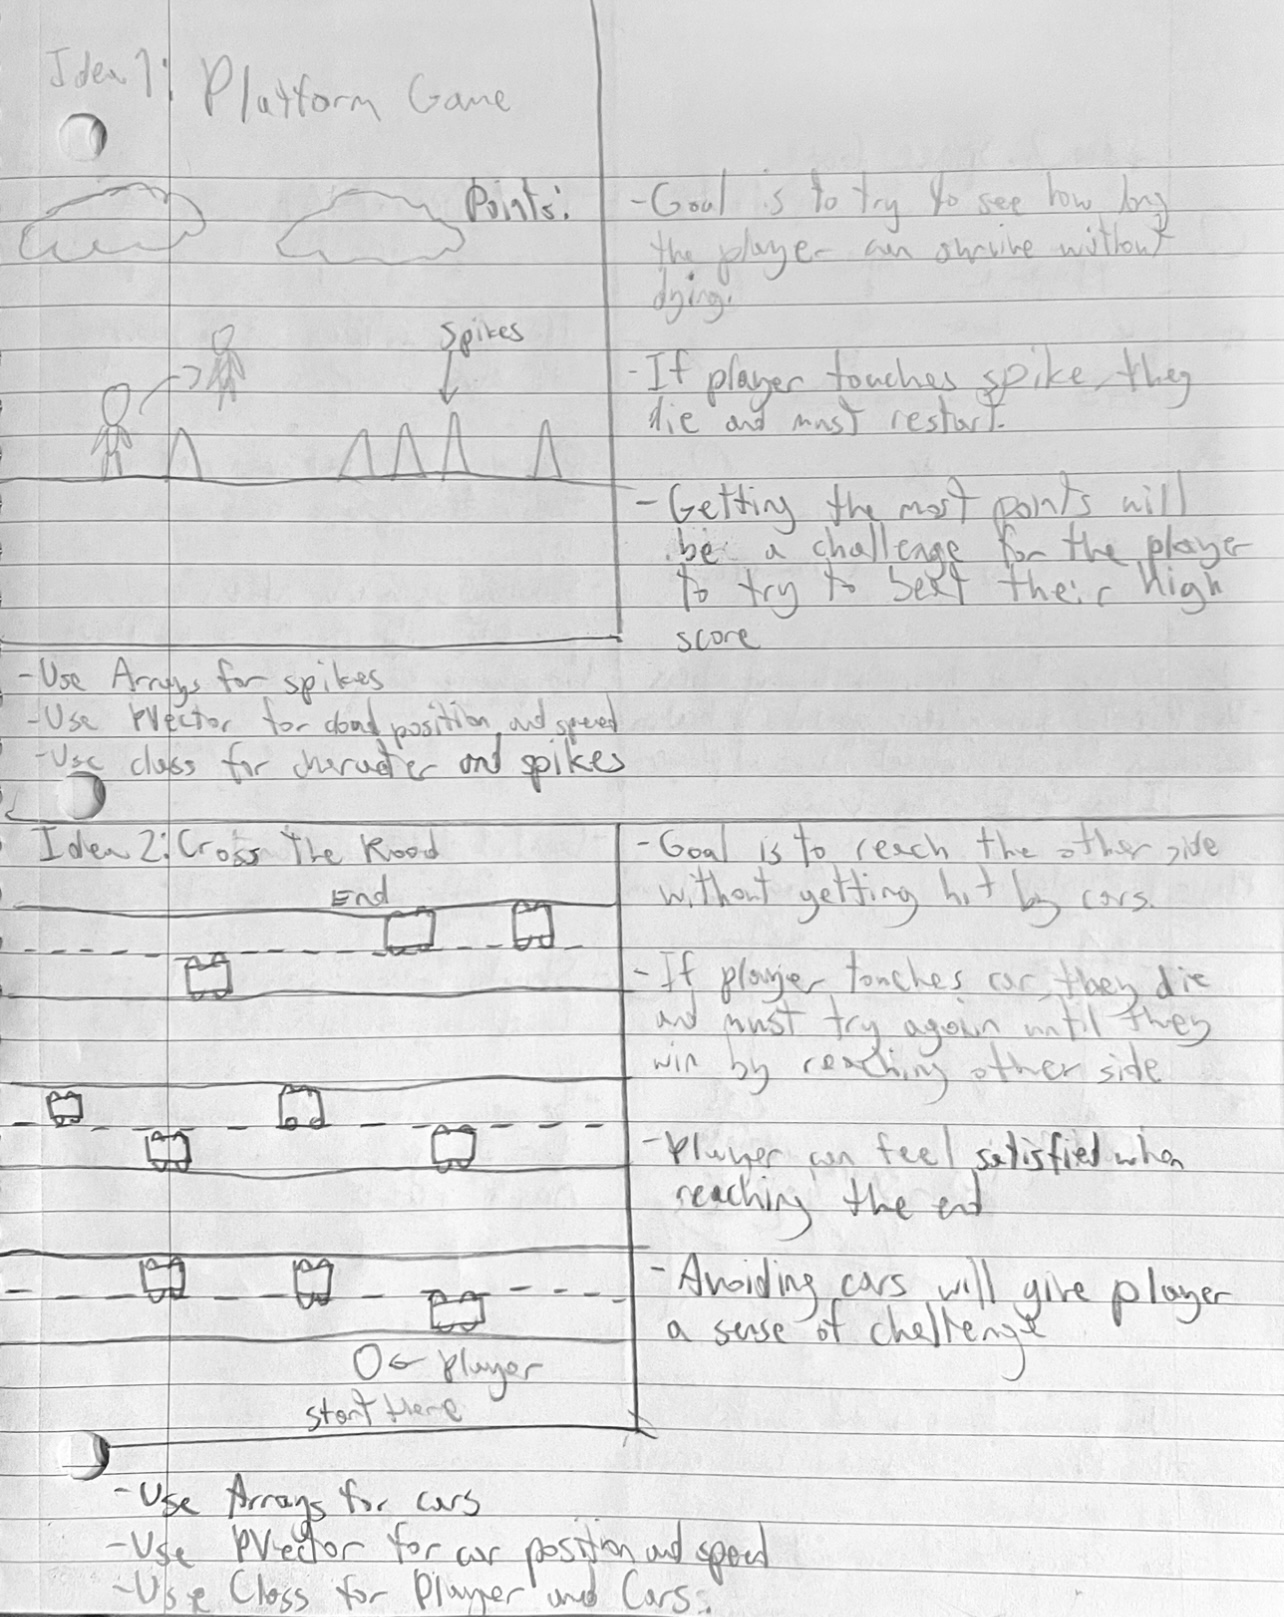 Idea 1: Platform Game
Points:
Spikes
- Goal is to try to see how long
the player can survive without
dying.
- If player touches spike, they
die and must restart.
- Getting the most points will
be a challenge for the player
to try to beat their high
score
- Use Arrays for spikes
- Use PVector for cloud position and speed
- Use class for character and spikes
Idea 2: Cross The Road
End
player
start there
- Goal is to reach the other side
without getting hit by cars.
- If player touches car, they die
and must try again until they
win by reaching other side
- Player can feel satisfied when
reaching the end
- Avoiding cars will give player
a sense of challenge
- Use Arrays for cars
- Use PVector for car position and speed
- Use Class for Player and Cars.